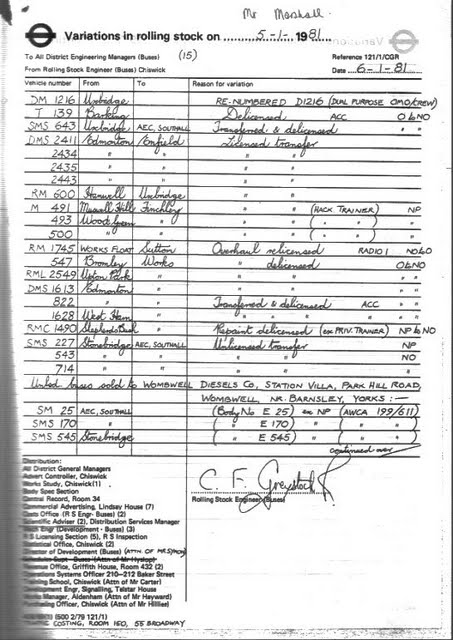 Mr Marshall.
Variations in rolling stock on 5-1-1981
To All District Engineering Managers (Buses) (15)
Reference 121/1/CGR
From Rolling Stock Engineer (Buses) Chiswick
Date 6-1-81
Vehicle number From To Reason for variation
DM 1216 Uxbridge RE-NUMBERED D1216 (DUAL PURPOSE OMO/CREW)
T 139 Barking Delicensed ACC O to NO
SMS 643 Uxbridge AEC, SOUTHALL Transferred & delicensed " "
DMS 2411 Edmonton Enfield Licensed transfer
2434 " " " "
2435 " " " "
2443 " " " "
RM 600 Hanwell Uxbridge " "
M 491 Muswell Hill Finchley " " (HACK TRAINER) NP
493 Wood Green " " " ( " " ) "
500 " " " " ( " " ) "
RM 1745 WORKS FLOAT Sutton Overhaul relicensed RADIO 1 NO to O
547 Bromley Works " delicensed O to NO
RML 2549 Upton Park " " " " "
DMS 1613 Edmonton " " " " "
822 " " Transferred & delicensed ACC " "
1628 West Ham " " " " " "
RMC 1490 Shepherds Bush " Repaint delicensed (ex PRIV. TRAINER) NP to NO
SMS 227 Stonebridge AEC, SOUTHALL Unlicensed transfer NP
543 " " " " NO
714 " " " " "
Unlcd buses sold to WOMBWELL DIESELS CO, STATION VILLA, PARK HILL ROAD,
WOMBWELL, NR. BARNSLEY, YORKS :—
SM 25 AEC, SOUTHALL (Body No E 25) ex NP (AWCA 199/611)
SMS 170 " ( " E 170) " ( " " )
SMS 545 Stonebridge ( " E 545) " ( " " )
continued over
Distribution:
All District General Managers
Advert Controller, Chiswick
Works Study, Chiswick (1)
Body Spec Section
Central Record, Room 34
Commercial Advertising, Lindsay House (7)
Costs Office (R S Engr- Buses) (2)
Scientific Adviser (2), Distribution Services Manager
Tech Engr (Development - Buses) (3)
R S Licensing Section (5), R S Inspection
Statistical Office, Chiswick (2)
Director of Development (Buses)
Revenue Office, Griffith House, Room 432 (2)
Operations Systems Officer 210–212 Baker Street
Training School, Chiswick (Attn of Mr Carter)
Development Engr, Signalling, Telstar House
Works Manager, Aldenham (Attn of Mr Hayward)
Purchasing Officer, Chiswick (Attn of Mr Hillier)
(500 2/79 121/1)
TRAFFIC COSTING, ROOM 160, 55 BROADWAY
C. F. Greystock
Rolling Stock Engineer (Buses)